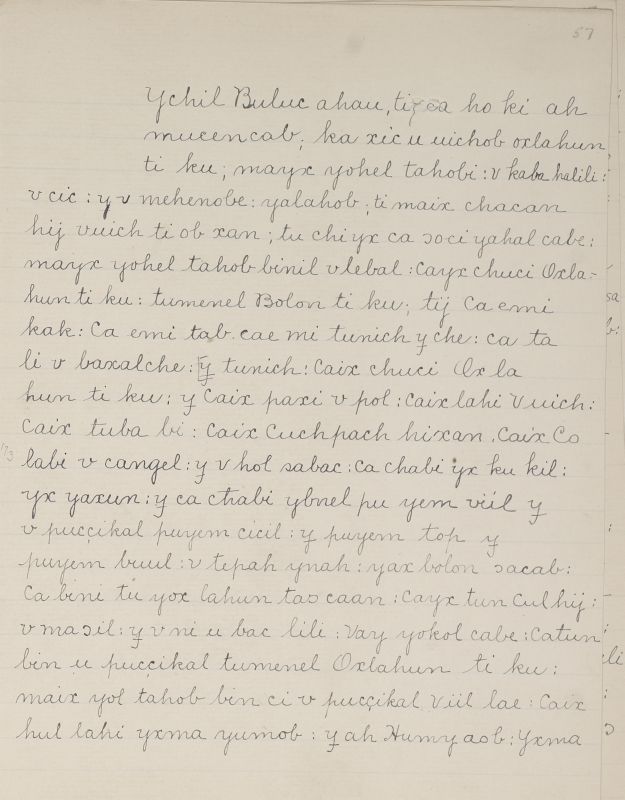 57
Ychil Buluc ahau, tij ca ho ki ah
mucencab; ka xic u uichob oxlahun
ti ku; mayx yohel tahobi: v kaba halili:
v cic: y v mehenobe: yalahob; ti maix chacan
hij vuich ti ob xan; tu chi yx ca ɔoci yahal cabe:
mayx yohel tahob binil vlebal: Cayx chuci Oxla-
hun ti ku: tumenel Bolon ti ku; tij Ca emi
kak: Ca emi tab. cae mi tunich y che: ca ta
li v baxalche: y tunich: Caix chuci Ox la
hun ti ku: y Caix paxi v pol: Caix lahi Vuich:
Caix tuba bi: Caix Cuchpach hixan. Caix Co
173
labi v cangel: y v hol sabac: Ca chabi yx ku kil:
yx yaxun: y ca chabi ybnel pu yem viil y
v pucçikal puyem cicil: y puyem top y
puyem buul: v tepah ynah: yax bolon ɔacab:
Ca bini tu yox lahun taɔ caan: Cayx tun Culhij:
v maɔil: y v ni u bac lili: Vay yokol cabe: Catun
bin u pucçikal tumenel Oxlahun ti ku:
maix yol tahob bin ci v pucçikal Viil lae: Caix
hul lahi yxma yumob: y ah Numyaob: Yxma